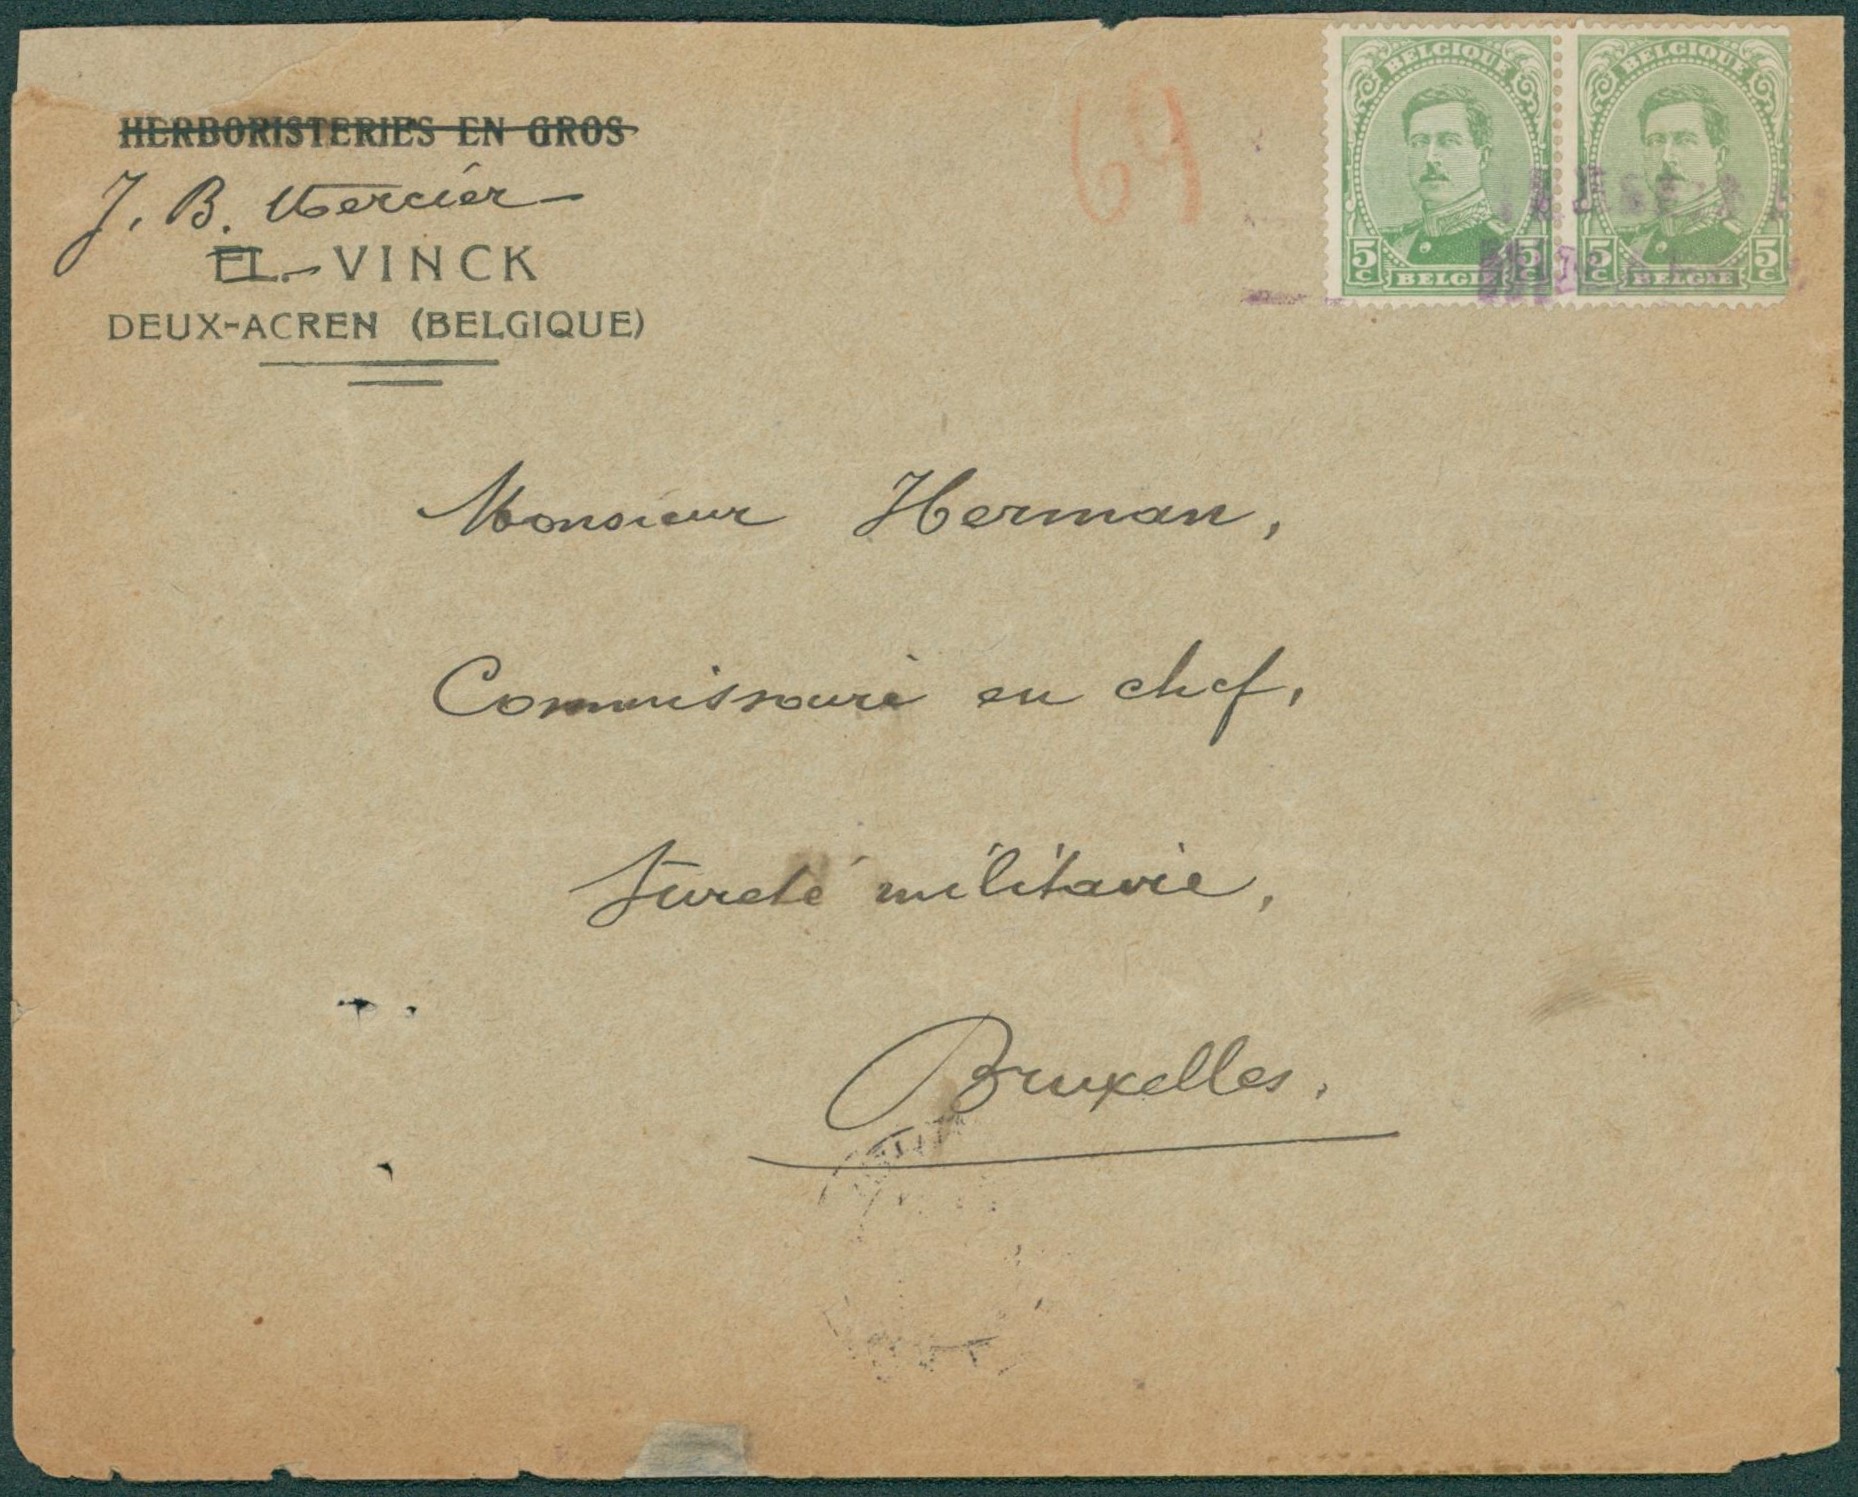 HERBORISTERIES EN GROS
J. B. Mercier
FL. VINCK
DEUX-ACREN (BELGIQUE)
69
BELGIQUE BELGIQUE
5c 5c 5c 5c
BELGIE BELGIE
Monsieur Herman,
Commissaire en chef,
Sureté militaire,
Bruxelles.